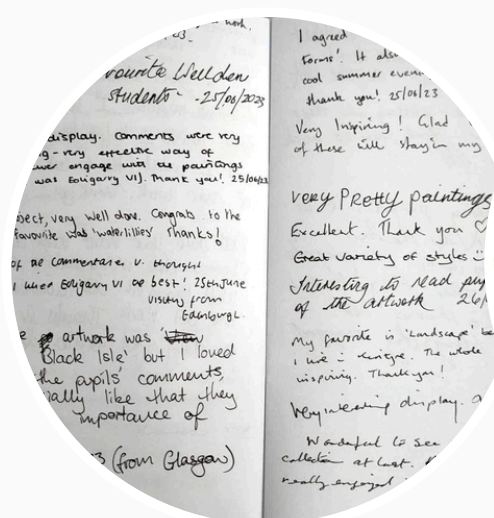 work.
favourite Wellden
students - 25/06/2023
display. Comments were very
very effective way of
engage with the paintings
was Eoligarry VI). Thank you! 25/06/23
very well done. Congrats to the
favourite was 'waterlillies' Thanks!
of the commentaries v. thought
I liked Eoligarry VI the best! 25th June
visitng from
Edinburgh.
artwork was
Black Isle' but I loved
the pupils' comments,
really like that they
importance of
(from Glasgow)
I agreed
forms'. It also
cool summer even
thank you! 25/06/23
Very Inspiring! Glad
of these will stay in my
very Pretty paintings
Excellent. Thank you ♡
Great variety of styles ☺
Interesting to read pup
of the artwork 26/
My favorite is 'Landscape' be
I live in Kintyre. The whole
inspiring. Thank you!
display.
Wonderful to see
collection at last.
really enjoyed